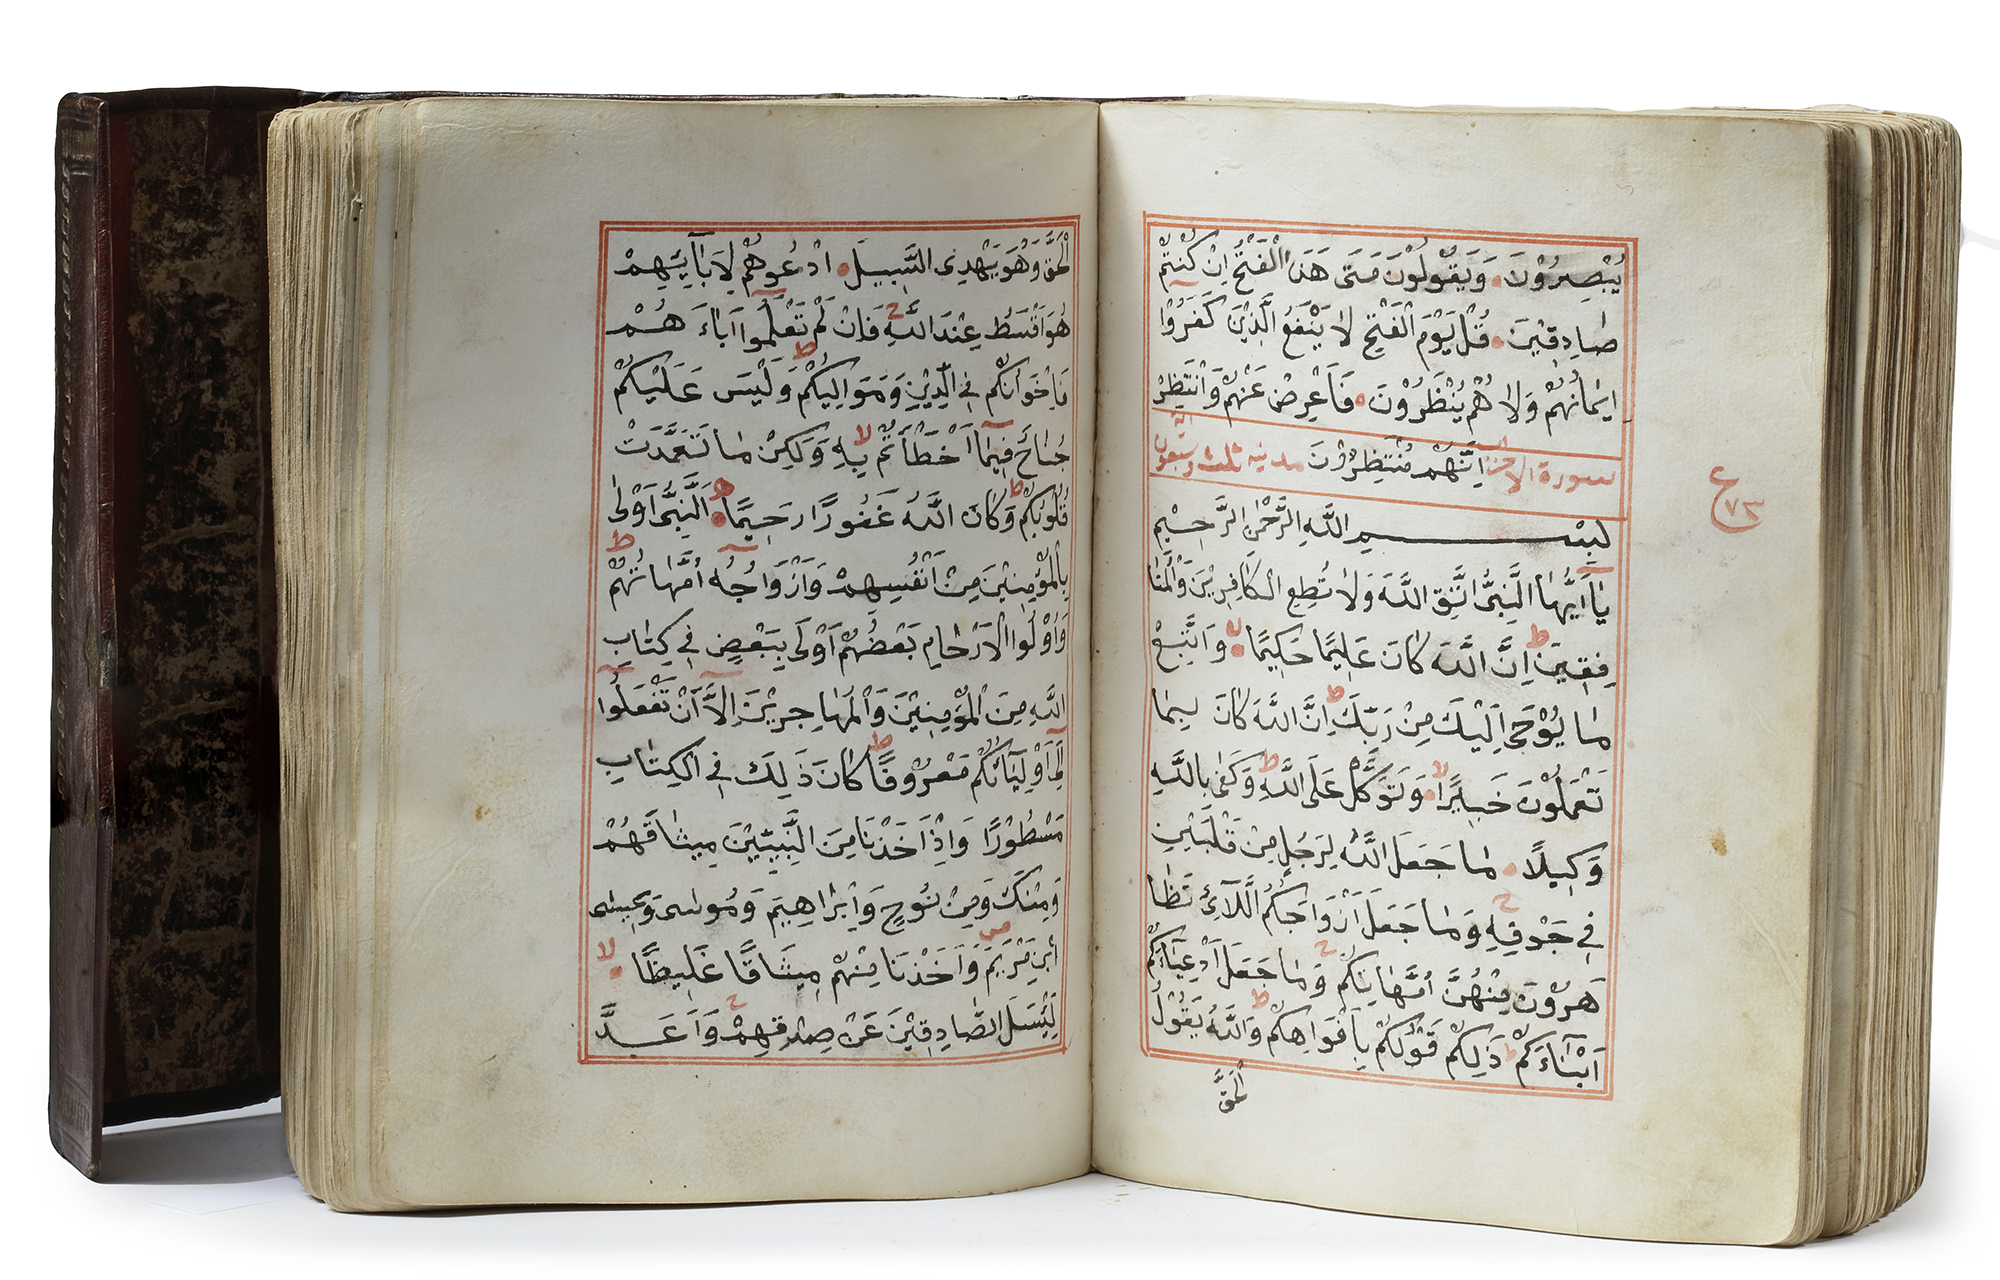 يُبْصِرُوْنَ وَيَقُوْلُوْنَ مَتَى هَذَا الْفَتْحُ اِنْ كُنْتُمْ
صَادِقِيْنَ قُلْ يَوْمَ الْفَتْحِ لَا يَنْفَعُ الَّذِيْنَ كَفَرُوْا
اِيْمَانُهُمْ وَلَا هُمْ يُنْظَرُوْنَ فَاَعْرِضْ عَنْهُمْ وَانْتَظِرْ
سورة الاحزاب اِنَّهُمْ مُنْتَظِرُوْنَ مدنيه ثلث وسبعون اية
ع ٧٣
بِسْمِ اللَّهِ الرَّحْمٰنِ الرَّحِيْمِ
يَااَيُّهَا النَّبِىُّ اتَّقِ اللَّهَ وَلَا تُطِعِ الْكَافِرِيْنَ وَالْمُنَا
فِقِيْنَ ط اِنَّ اللَّهَ كَانَ عَلِيْمًا حَكِيْمًا لا وَاتَّبِعْ
مَا يُوْحَى اِلَيْكَ مِنْ رَبِّكَ ط اِنَّ اللَّهَ كَانَ بِمَا
تَعْمَلُوْنَ خَبِيْرًا لا وَتَوَكَّلْ عَلَى اللَّهِ ط وَكَفٰى بِاللَّهِ
وَكِيْلًا مَا جَعَلَ اللَّهُ لِرَجُلٍ مِنْ قَلْبَيْنِ
فِى جَوْفِهِ ج وَمَا جَعَلَ اَزْوَاجَكُمُ اللَّائِ تَظَا
هَرُوْنَ مِنْهُنَّ اُمَّهَاتِكُمْ ج وَمَا جَعَلَ اَدْعِيَاءَكُمْ
اَبْنَاءَكُمْ ط ذَلِكُمْ قَوْلُكُمْ بِاَفْوَاهِكُمْ ط وَاللَّهُ يَقُوْلُ
الْحَقَّ
الْحَقَّ وَهُوَ يَهْدِى السَّبِيْلَ اُدْعُوهُمْ لِاَبَائِهِمْ
هُوَ اَقْسَطُ عِنْدَ اللَّهِ ج فَاِنْ لَمْ تَعْلَمُوا اَبَاءَ هُمْ
فَاِخْوَانُكُمْ فِى الدِّيْنِ وَمَوَالِيْكُمْ ط وَلَيْسَ عَلَيْكُمْ
جُنَاحٌ فِيْمَا اَخْطَأْ تُمْ بِهِ لا وَلَكِنْ مَا تَعَمَّدَتْ
قُلُوْبُكُمْ ط وَكَانَ اللَّهُ غَفُوْرًا رَحِيْمًا اَلنَّبِىُّ اَوْلٰى
بِالْمُؤْمِنِيْنَ مِنْ اَنْفُسِهِمْ وَاَزْوَاجُهُ اُمَّهَاتُهُمْ ط
وَاُوْلُوا الْاَرْحَامِ بَعْضُهُمْ اَوْلَى بِبَعْضٍ فِى كِتَابِ
اللَّهِ مِنَ الْمُؤْمِنِيْنَ وَالْمُهَاجِرِيْنَ اِلَّا اَنْ تَفْعَلُوْا
اِلَى اَوْلِيَائِكُمْ مَعْرُوْفًا ط كَانَ ذَلِكَ فِى الْكِتَابِ
مَسْطُوْرًا وَاِذْ اَخَذْنَا مِنَ النَّبِيِّيْنَ مِيْثَاقَهُمْ
وَمِنْكَ وَمِنْ نُوْحٍ وَاِبْرَاهِيْمَ وَمُوْسٰى وَعِيْسٰى
ابْنِ مَرْيَمَ ص وَاَخَذْنَا مِنْهُمْ مِيْثَاقًا غَلِيْظًا لا
لِيَسْئَلَ الصَّادِقِيْنَ عَنْ صِدْقِهِمْ ج وَاَعَدَّ